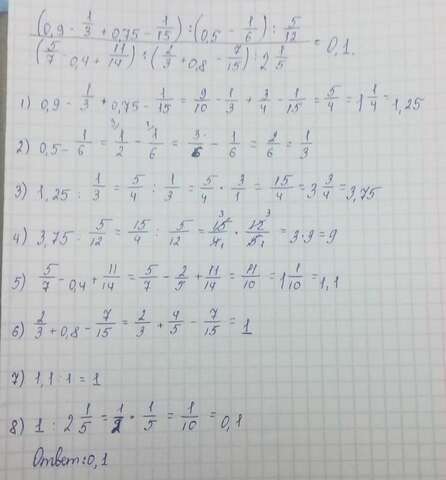 (0,9 - 1/3 + 0,75 - 1/15) : (0,5 - 1/6) : 5/12
(5/7 - 0,4 + 11/14) : (2/3 + 0,8 - 7/15) : 2 1/5 = 0,1.
1) 0,9 - 1/3 + 0,75 - 1/15 = 9/10 - 1/3 + 3/4 - 1/15 = 5/4 = 1 1/4 = 1,25
2) 0,5 - 1/6 = 3/ 1/2 - 1/ 1/6 = 3/6 - 1/6 = 2/6 = 1/3
3) 1,25 : 1/3 = 5/4 : 1/3 = 5/4 · 3/1 = 15/4 = 3 3/4 = 3,75
4) 3,75 : 5/12 = 15/4 : 5/12 = 15 3/4 1 · 12 3/5 1 = 3·3 = 9
5) 5/7 - 0,4 + 11/14 = 5/7 - 2/5 + 11/14 = 11/10 = 1 1/10 = 1,1
6) 2/3 + 0,8 - 7/15 = 2/3 + 4/5 - 7/15 = 1
7) 1,1 : 1 = 1
8) 1 : 2 1/5 = 1/2 · 1/5 = 1/10 = 0,1
Ответ: 0,1